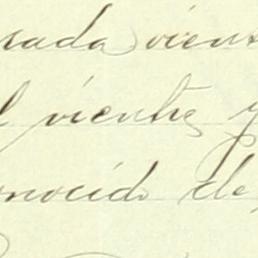 rada vien
l vientre y
onocido de